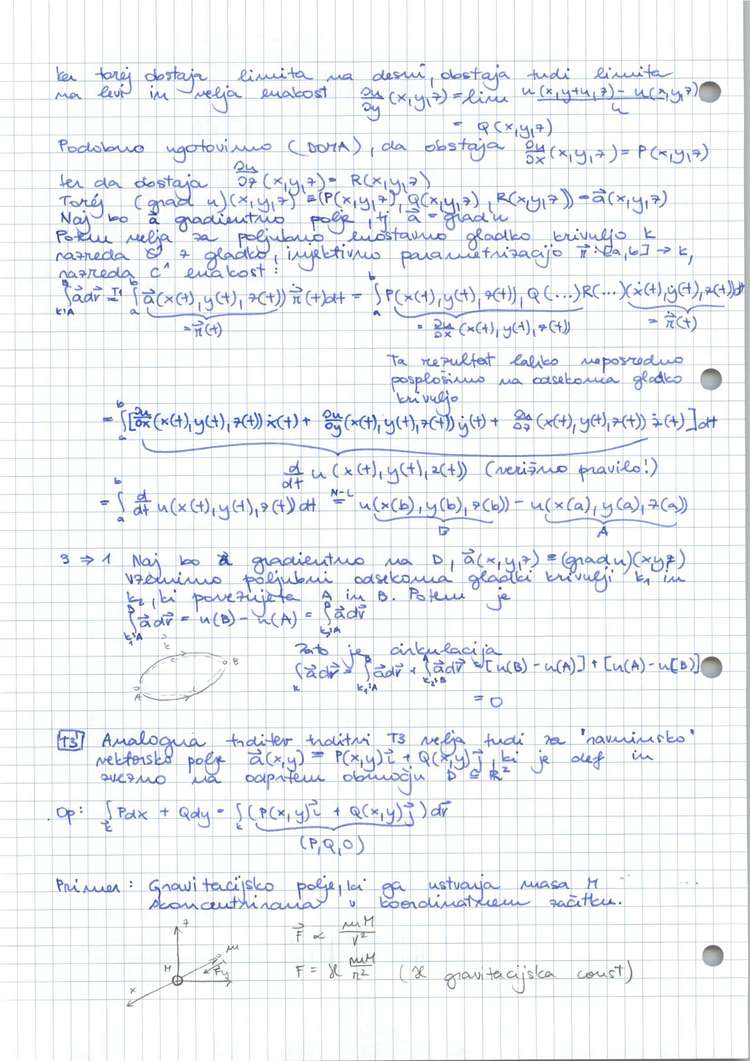 ker torej obstaja limita na desni, obstaja tudi limita
na levi in velja enakost ∂u/∂y (x,y,z) = lim (u(x,y+h,z) - u(x,y,z))/h
= Q(x,y,z)
Podobno ugotovimo (DOMA), da obstaja ∂u/∂x (x,y,z) = P(x,y,z)
ter da obstaja ∂u/∂z (x,y,z) = R(x,y,z)
Torej (grad u)(x,y,z) = (P(x,y,z), Q(x,y,z), R(x,y,z)) = a⃗(x,y,z)
Naj bo a⃗ gradientno polje, tj a⃗ = grad u
Potem velja za poljubno enostavno gladko krivuljo k
razreda C¹ z gladko, injektivno parametrizacijo r⃗: [a,b] → k,
razreda C¹ enakost:
∫ a⃗dr⃗ = ∫ a⃗(x(t),y(t),z(t)) r⃗(t)dt = ∫ P(x(t),y(t),z(t)), Q(...)R(...)(ẋ(t),ẏ(t),ż(t))dt
= r⃗(t) = ∂u/∂x (x(t),y(t),z(t)) = r⃗(t)
Ta rezultat lahko neposredno
posplošimo na odsekoma gladko
krivuljo
= ∫[∂u/∂x (x(t),y(t),z(t)) ẋ(t) + ∂u/∂y (x(t),y(t),z(t)) ẏ(t) + ∂u/∂z (x(t),y(t),z(t)) ż(t)]dt
d/dt u(x(t),y(t),z(t)) (verižno pravilo!)
= ∫ d/dt u(x(t),y(t),z(t))dt =(N-L) u(x(b),y(b),z(b)) - u(x(a),y(a),z(a))
B A
3 ⇒ 1 Naj bo a⃗ gradientno na D, a⃗(x,y,z) = (grad u)(x,y,z)
Vzemimo poljubni odsekoma gladki krivulji k₁ in
k₂, ki povezujeta A in B. Potem je
∫ a⃗dr⃗ = u(B) - u(A) = ∫ a⃗dr⃗
Zato je cirkulacija
∫ a⃗dr⃗ = ∫ a⃗dr⃗ + ∫ a⃗dr⃗ = [u(B) - u(A)] + [u(A) - u(B)]
= 0
A B
T3 Analogna trditev trditvi T3 velja tudi za "ravninsko"
vektorsko polje a⃗(x,y) = P(x,y)i⃗ + Q(x,y)j⃗, ki je def in
zvezno na odprtem območju D ⊆ R²
Op: ∫ Pdx + Qdy = ∫ (P(x,y)i⃗ + Q(x,y)j⃗)dr⃗
(P,Q,0)
Primer: Gravitacijsko polje, ki ga ustvarja masa M
skoncentrirana v koordinatnem začetku.
F⃗ ∝ mM/r²
F = ϰ mM/r² (ϰ gravitacijska const)
z
m
M
x